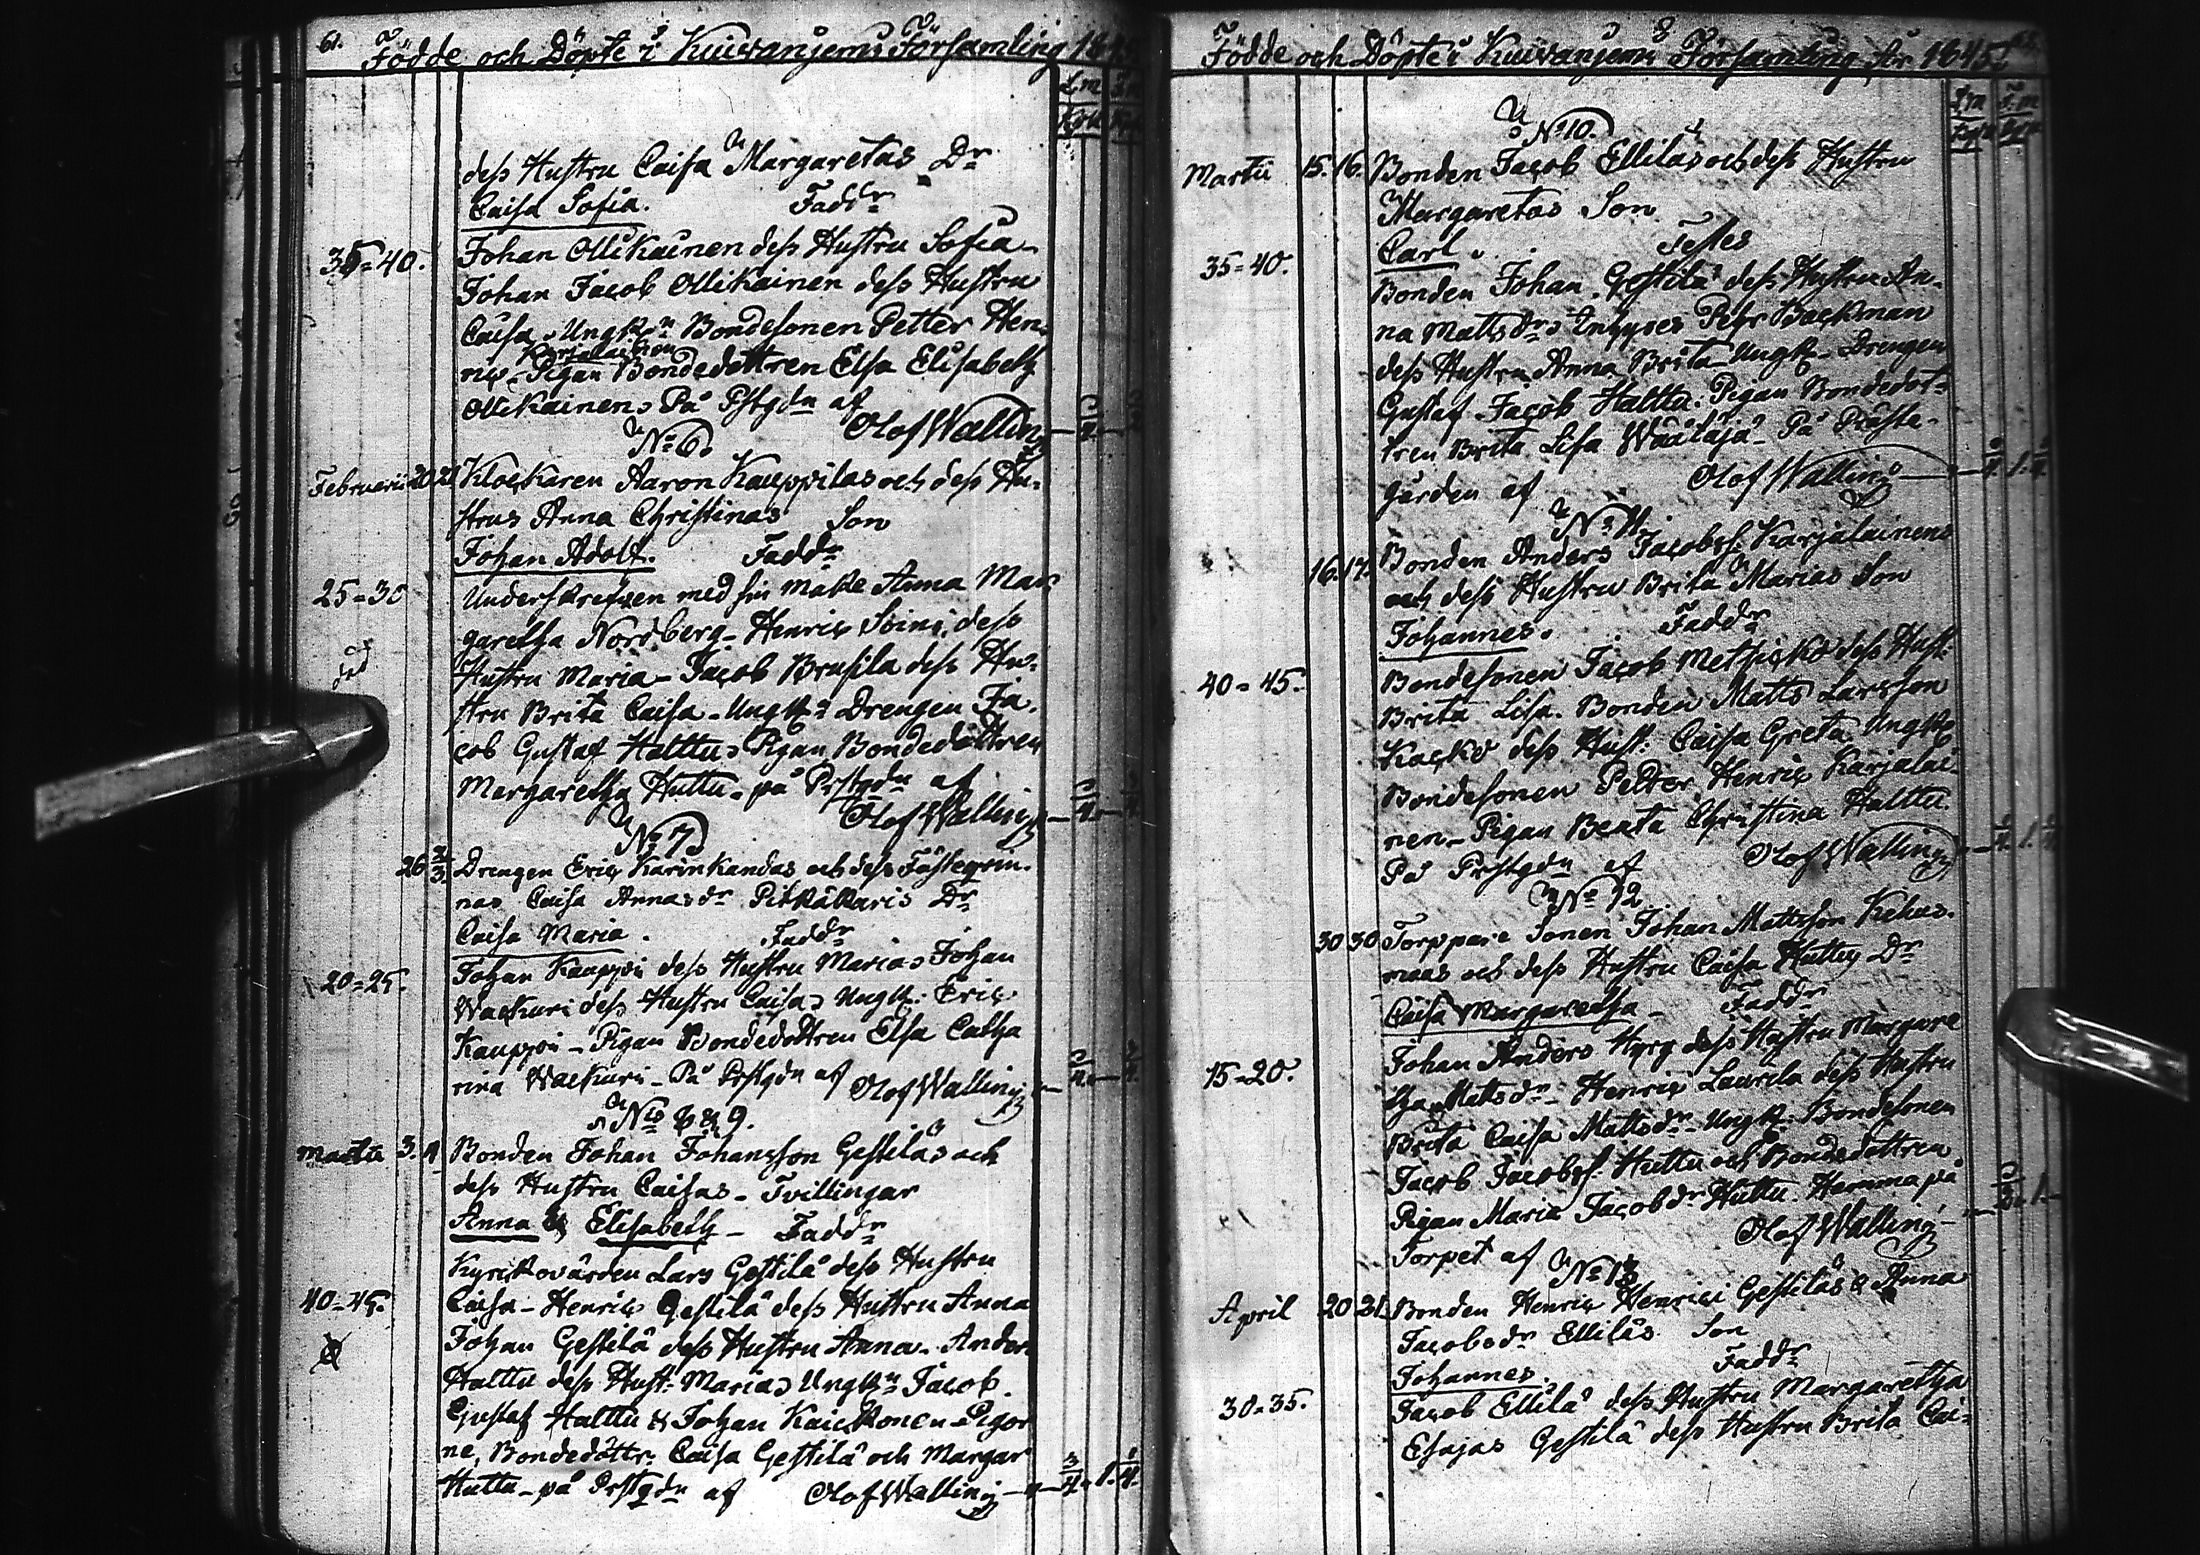 61. Födde och Döpte i Kuivaniemi Församling 1845
dess Hustru Caisa Margaretas Dr
Caisa Sofia. Faddr
35=40. Johan Ollikainen dess Hustru Sofia
Johan Jacob Ollikainen dess Hustru
Caisa, Bondesonen Petter Hen-
Karjalainen
ric - Pigan Bondedottren Elsa Elisabeth
Ollikainen På Pstgdn af
Olof Walling
No 6.
Februarii 20 21 Klockaren Aaron Kauppilas och dess Hu-
strus Anna Christinas Son
Johan Adolf. Faddr
25=30 Underskrefven med sin maka Anna Mar
garetha Nordberg - Henric Soini, dess
Hustru Maria - Jacob Brusila dess Hu-
stru Brita Caisa - Drengen Ja-
cob Gustaf Halttu Pigan Bondedottren
Margaretha Huttu - på Prstgdn af
Olof Walling
No 7
26 2/3 Drengen Eric Karinkandas och dess Fästeqvin-
nas Caisa Annasdr Pitkäkaris Dr
Caisa Maria. Faddr
20=25. Johan Kauppi dess Hustru Maria Johan
Wackuri dess Hustru Caisa Eric
Kauppi - Pigan Bondedottren Elsa Catha
rina Wackuri - På Prstgdn af Olof Walling
No 8 & 9.
Martii 3. 4 Bonden Johan Johansson Gestiläs och
dess Hustru Caisas - Tvillingar
Anna & Elisabeth - Faddr
Kyrckovärden Lars Gestilä dess Hustru
40=45. Caisa - Henric Gestilä dess Hustru Anna
Johan Gestilä dess Hustru Anna - Anders
Halttu dess Hust: Maria Jacob
Gustaf Halttu & Johan Kaickonen - Pigor
ne, Bondedöttr: Caisa Gestilä och Margar
Huttu - på Prstgdn af Olof Walling
Födde och Döpte i Kuivaniemi Församling för 1845
No 10.
Martii 15. 16. Bonden Jacob Ellilas och dess Hustru
Margaretas Son
Carl. Testes
35=40. Bonden Johan Gestilä dess Hustru An-
na Mattsdr Pehr Backman
dess Hustru Anna Brita - Drengen
Gustaf Jacob Halttu. Pigan Bondedot-
tren Brita Lisa Wäätäjä - På Präste-
gården af Olof Walling
No 11.
16. 17. Bonden Anders Jacobss. Karjalainens
och dess Hustru Brita Marias Son
Johannes. Faddr
Bondesonen Jacob dess Hust:
40=45. Brita Lisa. Bonden Matts Larsson
dess Hust: Caisa Greta
Bondesonen Petter Henric Karjalai-
nen - Pigan Beata Christina Halttu
På Prstgdn af Olof Walling
No 12
30 30 Torppare Sonen Johan Mattsson Kekus-
maas och dess Hustru Caisa Huttus Dr
Caisa Margaretha - Faddr
15=20. Johan Anders Hyry dess Hustru Margare
tha Mattsdr - Henric Laurila dess Hustru
Brita Caisa Mattsdr - Bondesonen
Jacob Jacobss. Huttu och Bondedottren
Pigan Maria Jacobdr Huttu. Hemma på
Torpet af Olof Walling
No 13
April 20 21 Bonden Henric Henrici Gestiläs & Anna
Jacobsdr Elliläs Son
Johannes. Faddr
30=35. Jacob Ellilä dess Hustru Margaretha
Esajas Gestilä dess Hustru Brita Cai-